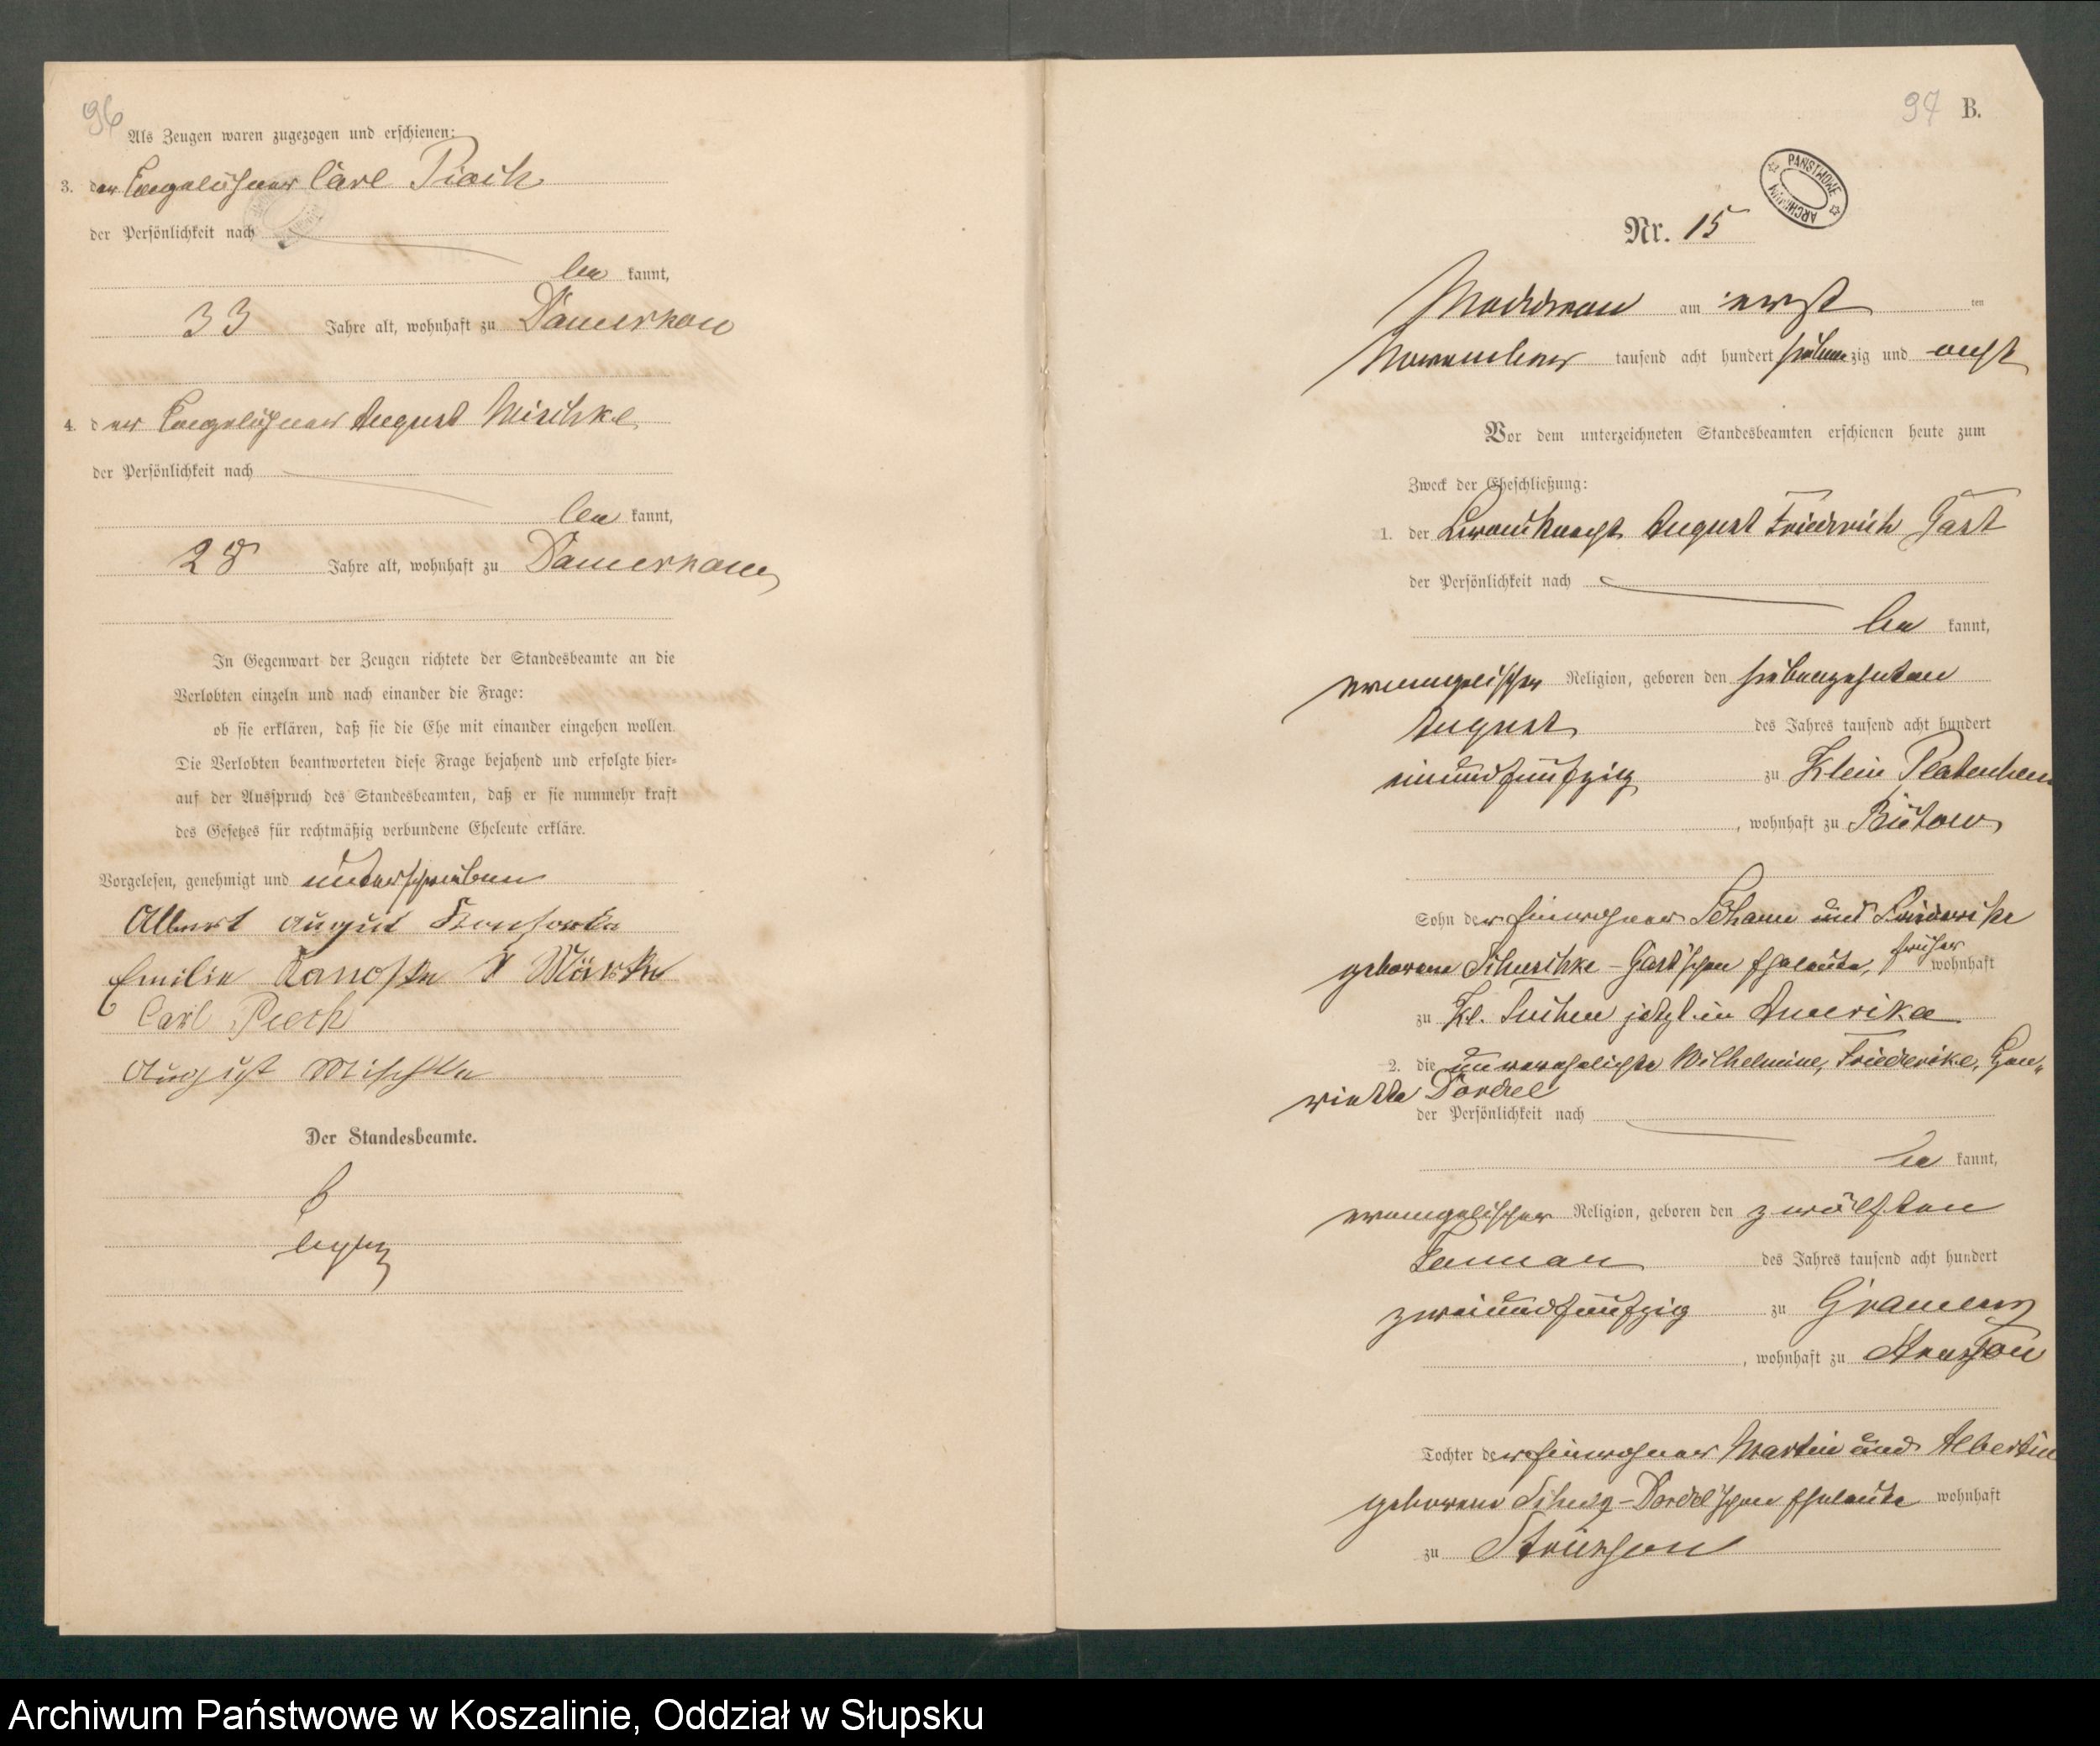 96
Als Zeugen waren zugezogen und erschienen:
3. der Tagelöhner Carl Piech
der Persönlichkeit nach
be kannt,
33 Jahre alt, wohnhaft zu Damerkow
4. der Tagelöhner August Mischke
der Persönlichkeit nach
be kannt,
28 Jahre alt, wohnhaft zu Damerkow
In Gegenwart der Zeugen richtete der Standesbeamte an die
Verlobten einzeln und nach einander die Frage:
ob sie erklären, daß sie die Ehe mit einander eingehen wollen.
Die Verlobten beantworteten diese Frage bejahend und erfolgte hier-
auf der Ausspruch des Standesbeamten, daß er sie nunmehr kraft
des Gesetzes für rechtmäßig verbundene Eheleute erkläre.
Vorgelesen, genehmigt und unterschrieben
Albert August
Emilie
Carl Piech
August Mischke
Der Standesbeamte.
97 B.
PAŃSTWOWE ARCHIWUM
Nr. 15
am erst ten
November tausend acht hundert siebenzig und acht
Vor dem unterzeichneten Standesbeamten erschienen heute zum
Zweck der Eheschließung:
1. der August Friedrich Gast
der Persönlichkeit nach
be kannt,
evangelischer Religion, geboren den siebenzehnten
August des Jahres tausend acht hundert
einundfünfzig zu Klein Platenheim
, wohnhaft zu Bütow
Sohn der Einwohner Johann und Friederike
geborene Schuschke - Gast'schen Eheleute, früher wohnhaft
zu Kl. Tuchen jetzt in Amerika
2. die unverehelichte Wilhelmine, Friederike, Hen-
riette Dordel
der Persönlichkeit nach
be kannt,
evangelischer Religion, geboren den zwölften
Januar des Jahres tausend acht hundert
zweiundfünfzig zu Gramenz
, wohnhaft zu
Tochter der Einwohner Martin und Albertine
geborene Schulz - Dordel'schen Eheleute wohnhaft
zu Strussow
Archiwum Państwowe w Koszalinie, Oddział w Słupsku